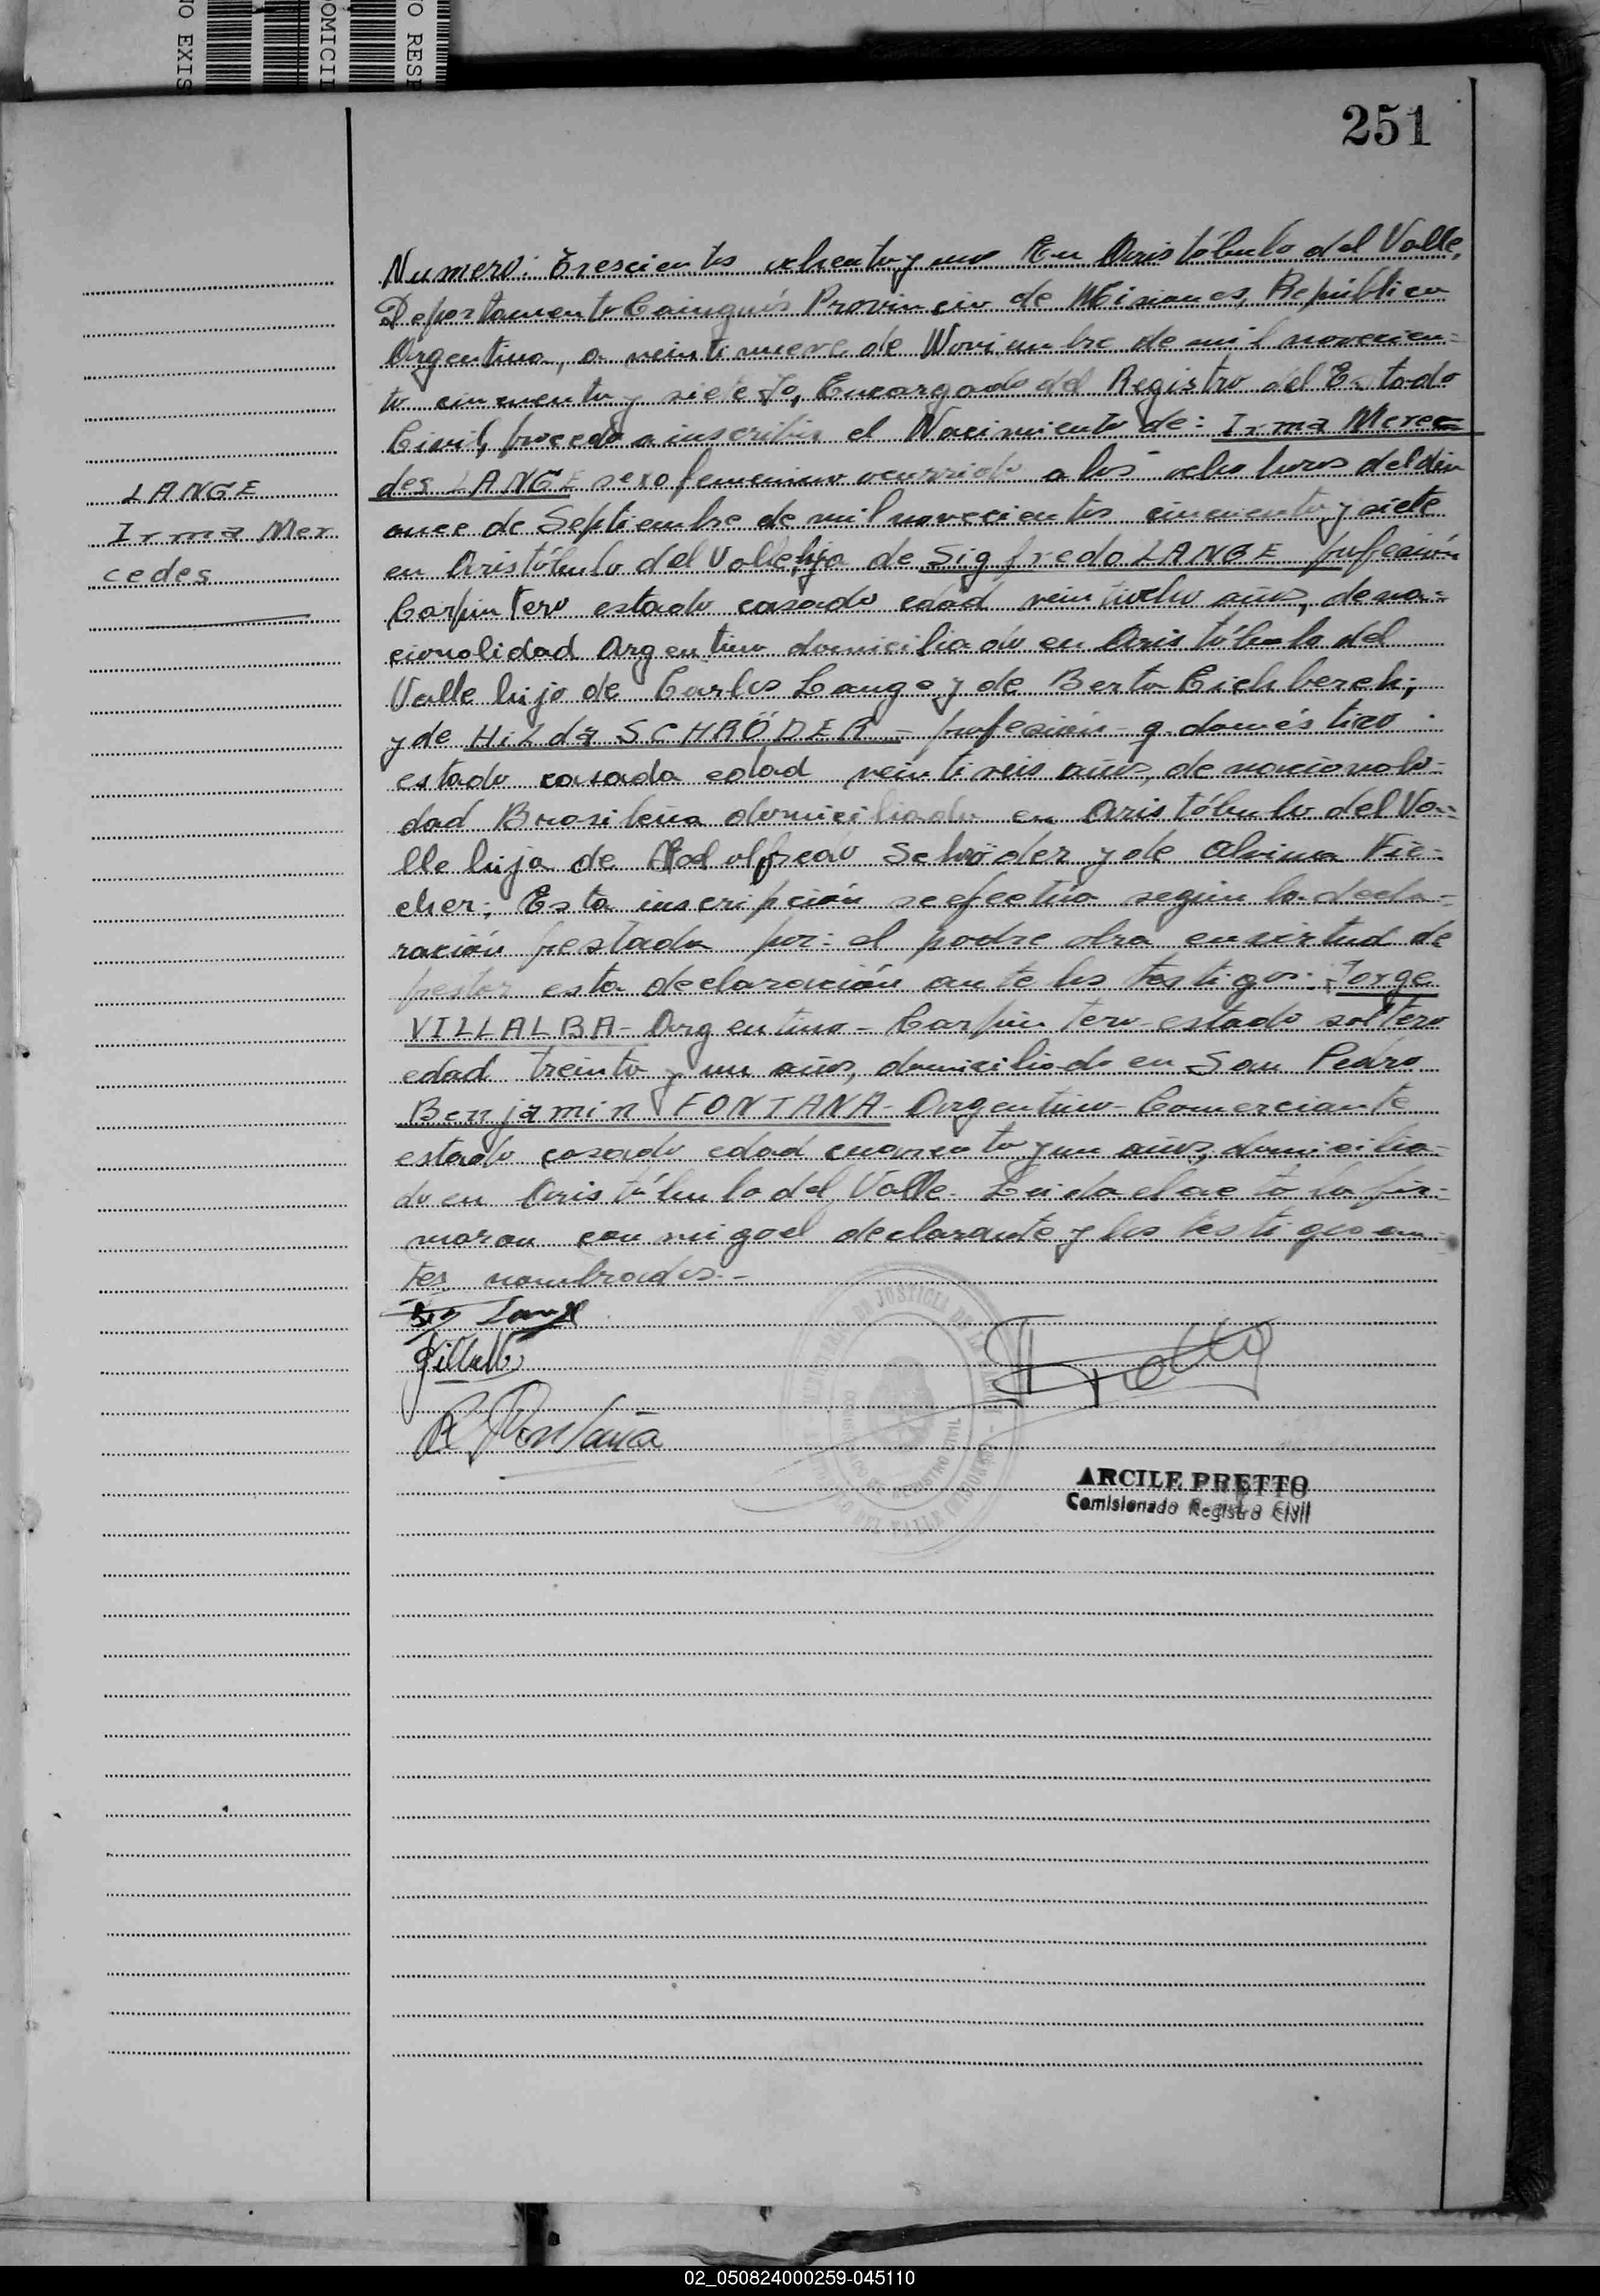 O RESP
OMICIL
O EXIS
251
Numero: Trescientos ochenta y uno En Aristóbulo del Valle,
Departamento Cainguás Provincia de Misiones, República
Argentina, a veintinueve de Noviembre de mil novecien=
to cincuenta y siete Yo, Encargado del Registro del Estado
Civil, procedo a inscribir el Nacimiento de: Irma Merce=
des LANGE sexo femenino ocurrido a las ocho horas del dia
once de Septiembre de mil novecientos cincuenta y siete
en Aristóbulo del Valle, hija de Sigfredo LANGE profesión
Carpintero estado casado edad veintiocho años, de na=
cionalidad Argentino domiciliado en Aristóbulo del
Valle hijo de Carlos Lange y de Berta Eichberch;
y de HiLda SCHRÖDER - profesión - q. doméstico.
estado casada edad veintiseis años, de nacionali=
dad Brasileña domiciliada en Aristóbulo del Va=
lle hija de Schröder y de Alvina Fic=
cher; Esta inscripción se efectúa según la decla=
ración prestada por: el padre obra en virtud de
prestar esta declaración ante los testigos: Jorge
VILLALBA - Argentino - Carpintero - estado soltero
edad treinta y un años, domiciliado en San Pedro
Benjamin FONTANA - Argentino - Comerciante
estado casado edad cuarenta y un años, domicilia=
do en Aristóbulo del Valle. Leida el acta la fir=
maron con migo el declarante y los testigos an=
tes nombrados.-
LANGE
Irma Mer
cedes
Sig Lange
JVillalba
B. Fontana
MINISTERIO DE JUSTICIA DE LA NACION
REGISTRO CIVIL
DEL VALLE (MISIONES)
ARCILE PRETTO
Comisionado Registro Civil
02_050824000259-045110